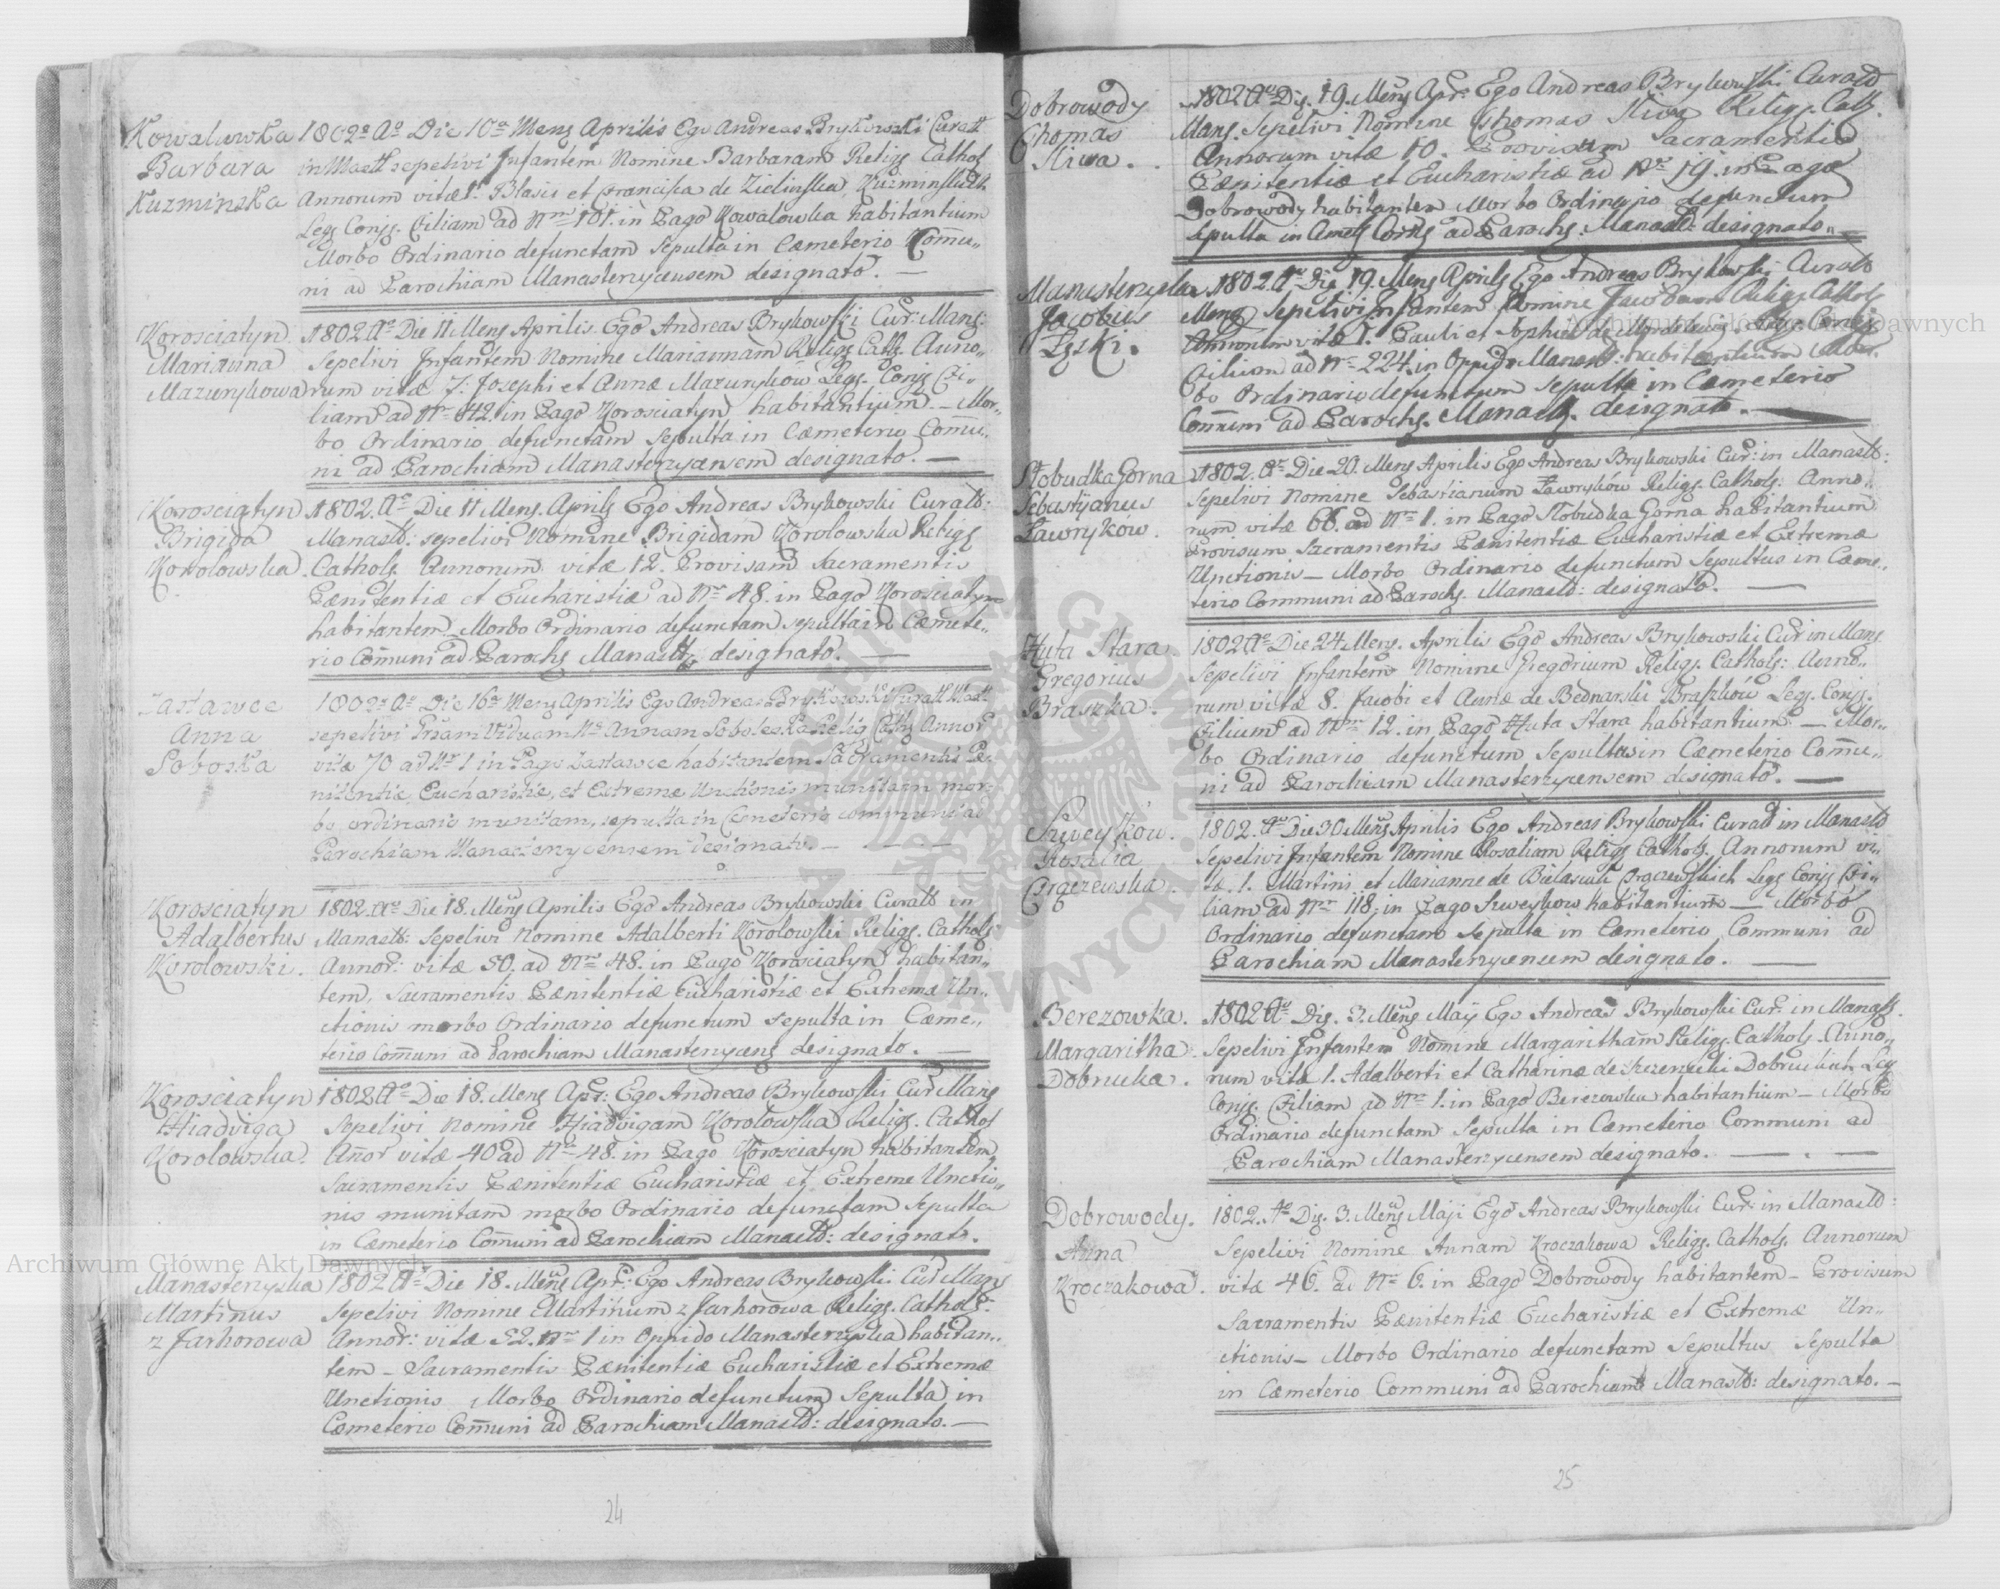 Kowalowka
Barbara
Kuzminska
1802o Ao Die 10a Mens Aprilis Ego Andreas Brykowski Curatt
in Mastt sepelivi Infantem Nomine Barbaram Religs Cathol
Annorum vitæ 1. Blasii et Francisca de Zielinska Kuzminskich
Legs Conjs. Filiam ad Nrm 101. in Pago Kowalowka habitantium
Morbo Ordinario defunctam Sepulta in Cæmeterio Com̄u,,
ni ad Parochiam Manasterzycensem designato. —
Korosciatyn
Marianna
Mazurykowa
1802 Ao Die 11 Mens Aprilis Ego Andreas Brykowski Cur: Mans:
Sepelivi Infantem Nomine Mariannam Religs Cath. Anno,,
rum vitæ 7. Josephi et Annæ Mazurykow Legs. Conjs Fi,,
liam ad Nr 42. in Pago Korosciatyn habitantium. – Mor,,
bo Ordinario defunctam Sepulta in Cæmeterio Com̄u,,
ni ad Parochiam Manasterzycensem designato. —
Korosciatyn
Brigida
Korolowska.
1802. Ao Die 11 Mens. Aprils Ego Andreas Brykowski Curatt:
Manastt: sepelivi Nomine Brigidam Korolowska Religs
Cathols Annorum vitæ 12. Provisam Sacramentis
Pænitentiæ et Eucharistiæ ad Nr 48. in Pago Korosciatyn
habitantem Morbo Ordinario defunctam sepulta in Cæmete,,
rio Com̄uni ad Parochs Manastt: designato. —
Zastawce
Anna
Soboska
1802o Ao Die 16a Mens Aprilis Ego Andreas Brykowski Curatt Mastt
sepelivi Viduam Annam Religs Cath Annor
vitæ 70 ad Nr 1 in Pago Zastawce habitantem Sacramentis Pæ,,
nitentiæ, Eucharistiæ, et Extremæ Unctionis munitam mor,,
bo ordinario munitam, sepulta in Cæmeterio communi ad
Parochiam Manasterzycensem designato. —
Korosciatyn
Adalbertus
Korolowski.
1802. Ao Die 18. Mens Aprilis Ego Andreas Brykowski Curatt in
Manastt: Sepelivi Nomine Adalberti Korolowski Religs. Cathols.
Annor: vitæ 50. ad Nr 48. in Pago Korosciatyn habitan,,
tem, Sacramentis Pænitentiæ Eucharistiæ et Extremæ Un,,
ctionis morbo Ordinario defunctum sepulta in Cæme,,
terio Com̄uni ad Parochiam Manasterzycens designato. —
Korosciatyn
Hiadviga
Korolowska.
1802. Ao Die 18. Mens Apr: Ego Andreas Brykowski Cur Mans
Sepelivi Nomine Hiadvigam Korolowska Religs. Cathol
An̄or vitæ 40 ad Nr 48. in Pago Korosciatyn habitantem
Sacramentis Pænitentiæ Eucharistiæ et Extreme Unctio,,
nis munitam morbo Ordinario defunctam Sepulta
in Cæmeterio Com̄uni ad Parochiam Manastt: designato.
Manasterzyska
Martinus
z Jarhorowa
1802 Ao Die 18. Mens Apr: Ego Andreas Brykowski Cur Mans
Sepelivi Nomine Martinum z Jarhorowa Religs. Cathols.
Annor: vitæ 52. Nr 1 in Oppido Manasterzyska habitan,,
tem – Sacramentis Pænitentiæ Eucharistiæ et Extremæ
Unctionis Morbo Ordinario defunctum Sepulta in
Cæmeterio Com̄uni ad Parochiam Manastt: designato. —
24
Dobrowody
Thomas
Sliwa.
1802 Ao Dis. 19. Mens Apr: Ego Andreas Brykowski Curatt
Mans. Sepelivi Nomine Thomas Sliwa Religs. Cath.
Annorum vitæ 10. Provisum Sacramentis
Pænitentiæ et Eucharistiæ ad Nr 19. in Pago
Dobrowody habitantem Morbo Ordinario defunctum
sepulta in Cmets Com̄s ad Parochs. Manastt: designato.
Manasterzyska
Jacobus
Lyski.
1802. Ao Die 19. Mens Aprils Ego Andreas Brykowski Curatt
Mans Sepelivi Infantem Nomine Jacobum Religs Cathols
Annorum vitæ 1. Pauli et Sophiæ de Legs. Conjs.
Filium ad Nr 224. in Oppido Manastt: habitantium Mor,,
bo Ordinario defunctum Sepulta in Cæmeterio
Com̄uni ad Parochs. Manastt. designato. —
Slobudka Gorna
Sebastyanus
Ławrykow.
1802. Ao Die 20. Mens Aprilis Ego Andreas Brykowski Cur: in Manastt:
Sepelivi Nomine Sebastianum Ławrykow Religs. Cathols: Anno,,
rum vitæ 66. ad Nr 1. in Pago Slobudka Gorna habitantium
Provisum Sacramentis Pænitentiæ Eucharistiæ et Extremæ
Unctionis – Morbo Ordinario defunctum Sepultus in Cæme,,
terio Communi ad Parochs. Manastt: designato. —
Huta Stara
Gregorius
Braszka.
1802 Ao Die 24 Mens. Aprilis Ego Andreas Brykowski Cur in Mans.
Sepelivi Infantem Nomine Gregorium Religs. Cathols: Anno,,
rum vitæ 8. Jacobi et Annæ de Bednarski Braszkow Legs. Conjs.
Filium ad Nrm 12. in Pago Huta Stara habitantium. — Mor,,
bo Ordinario defunctum Sepultus in Cæmeterio Com̄u,,
ni ad Parochiam Manasterzycensem designato. —
Szweykow.
Rosalia
Orgezewska.
1802. Ao Die 30 Mens Aprilis Ego Andreas Brykowski Curatt in Manastt
Sepelivi Infantem Nomine Rosaliam Religs Cathols. Annorum vi,,
tæ. 1. Martini et Marianne de Legs Conjs Fi,,
liam ad Nr 118. in Pago Szweykow habitantium — Morbo
Ordinario defunctam Sepulta in Cæmeterio Communi ad
Parochiam Manasterzycensem designato. —
Berezowka.
Margaritha
Dobrucka.
1802 Ao Dis. 3. Mens Maÿ Ego Andreas Brykowski Cur: in Manastt.
Sepelivi Infantem Nomine Margaritham Religs. Cathols. Anno,,
rum vitæ 1. Adalberti et Catharinæ de Dobruckich Legs
Conjs. Filiam ad Nr 1. in Pago Berezowka habitantium – Morbo
Ordinario defunctam Sepulta in Cæmeterio Communi ad
Parochiam Manasterzycensem designato. — . —
Dobrowody.
Anna
Kroczakowa.
1802. Ao Dis. 3. Mens Maji Ego Andreas Brykowski Cur: in Manastt:
Sepelivi Nomine Annam Kroczakowa Religs. Cathols. Annorum
vitæ 46. ad Nr 6. in Pago Dobrowody habitantem – Provisum
Sacramentis Pænitentiæ Eucharistiæ et Extremæ Un,,
ctionis – Morbo Ordinario defunctam Sepultus Sepulta
in Cæmeterio Communi ad Parochiam Manastt: designato. –
25
Archiwum Główne Akt Dawnych
Archiwum Główne Akt Dawnych
ARCHIWUM GŁÓWNE AKT DAWNYCH